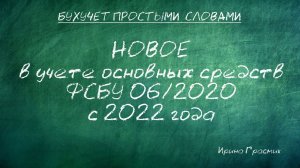 БУХУЧЕТ ПРОСТЫМИ СЛОВАМИ
НОВОЕ
в учете основных средств
ФСБУ 06/2020
с 2022 года
Ирина Прасник